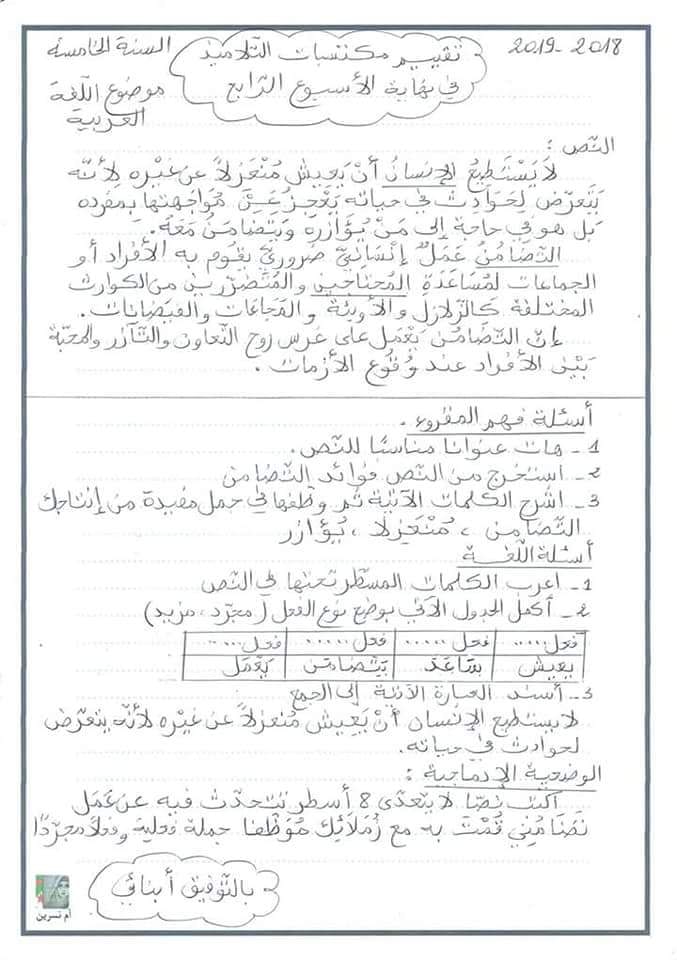 2018-2019
تقييم مكتسبات التلاميذ
السنة الخامسة
في نهاية الأسبوع الرابع
موضوع اللّغة
العربية
النّص :
لاَ يَسْتَطيعُ الإنسانُ أنْ يَعيشَ مُنْعَزلاً عن غَيْره لأنّه
يَتَعرّض لِحَوادث في حياته يَعْجزُ عَنْ مُواجهتها بمفرده
بل هو في حاجة إلى مَنْ يُؤازرهُ ويَتضامَنُ مَعَهُ.
التّضامُنُ عَمَلٌ إنْسَانيّ ضروريّ يقوم به الأفراد أو
الجماعات لمُسَاعَدَةِ المُحتاجين والمُتضرّرين من الكوارث
المختلفة كالزّلازل والأوبئة والمَجَاعات والفَيَضانات.
إنّ التّضامُن يَعْمَلُ على غرس روح التّعاون والتّآزر والمحبّة
بَيْنَ الأفراد عند وُقُوع الأزمات.
أسئلة فهم المقروء.
1 - هات عنوانا مناسبًا للنّص.
2 - استخرج من النّص فوائد التّضامن
3 - اشرح الكلمات الآتية ثم وظّفها في جمل مفيدة من إنتاجك
التّضامن ، مُنْعَزلاً ، يُؤازر
أسئلة اللّغة
1 - اعرب الكلمات المسطّر تحتها في النّص
2 - أكمل الجدول الآتي بوضع نوع الفعل (مجرّد، مزيد)
فعل...... فعل...... فعل...... فعل......
يعيشُ سَاعَدَ يتضامَن يَعْمَل
3 - أسند العبارة الآتية إلى الجمع
لا يستطيع الإنسان أنْ يَعيش مُنعزلاً عن غيْره لأنّه يتعرّض
لحوادث في حياته.
الوضعية الإدماجية :
اكتب نصّا لا يتعدّى 8 أسطر تتحدّث فيه عن عَمَل
تضامُني قُمْتَ به مع زملائك مُوَظّفا جملة فعلية وفعلاً مجرّدًا
بالتّوفيق أبنائي
أم نسرين